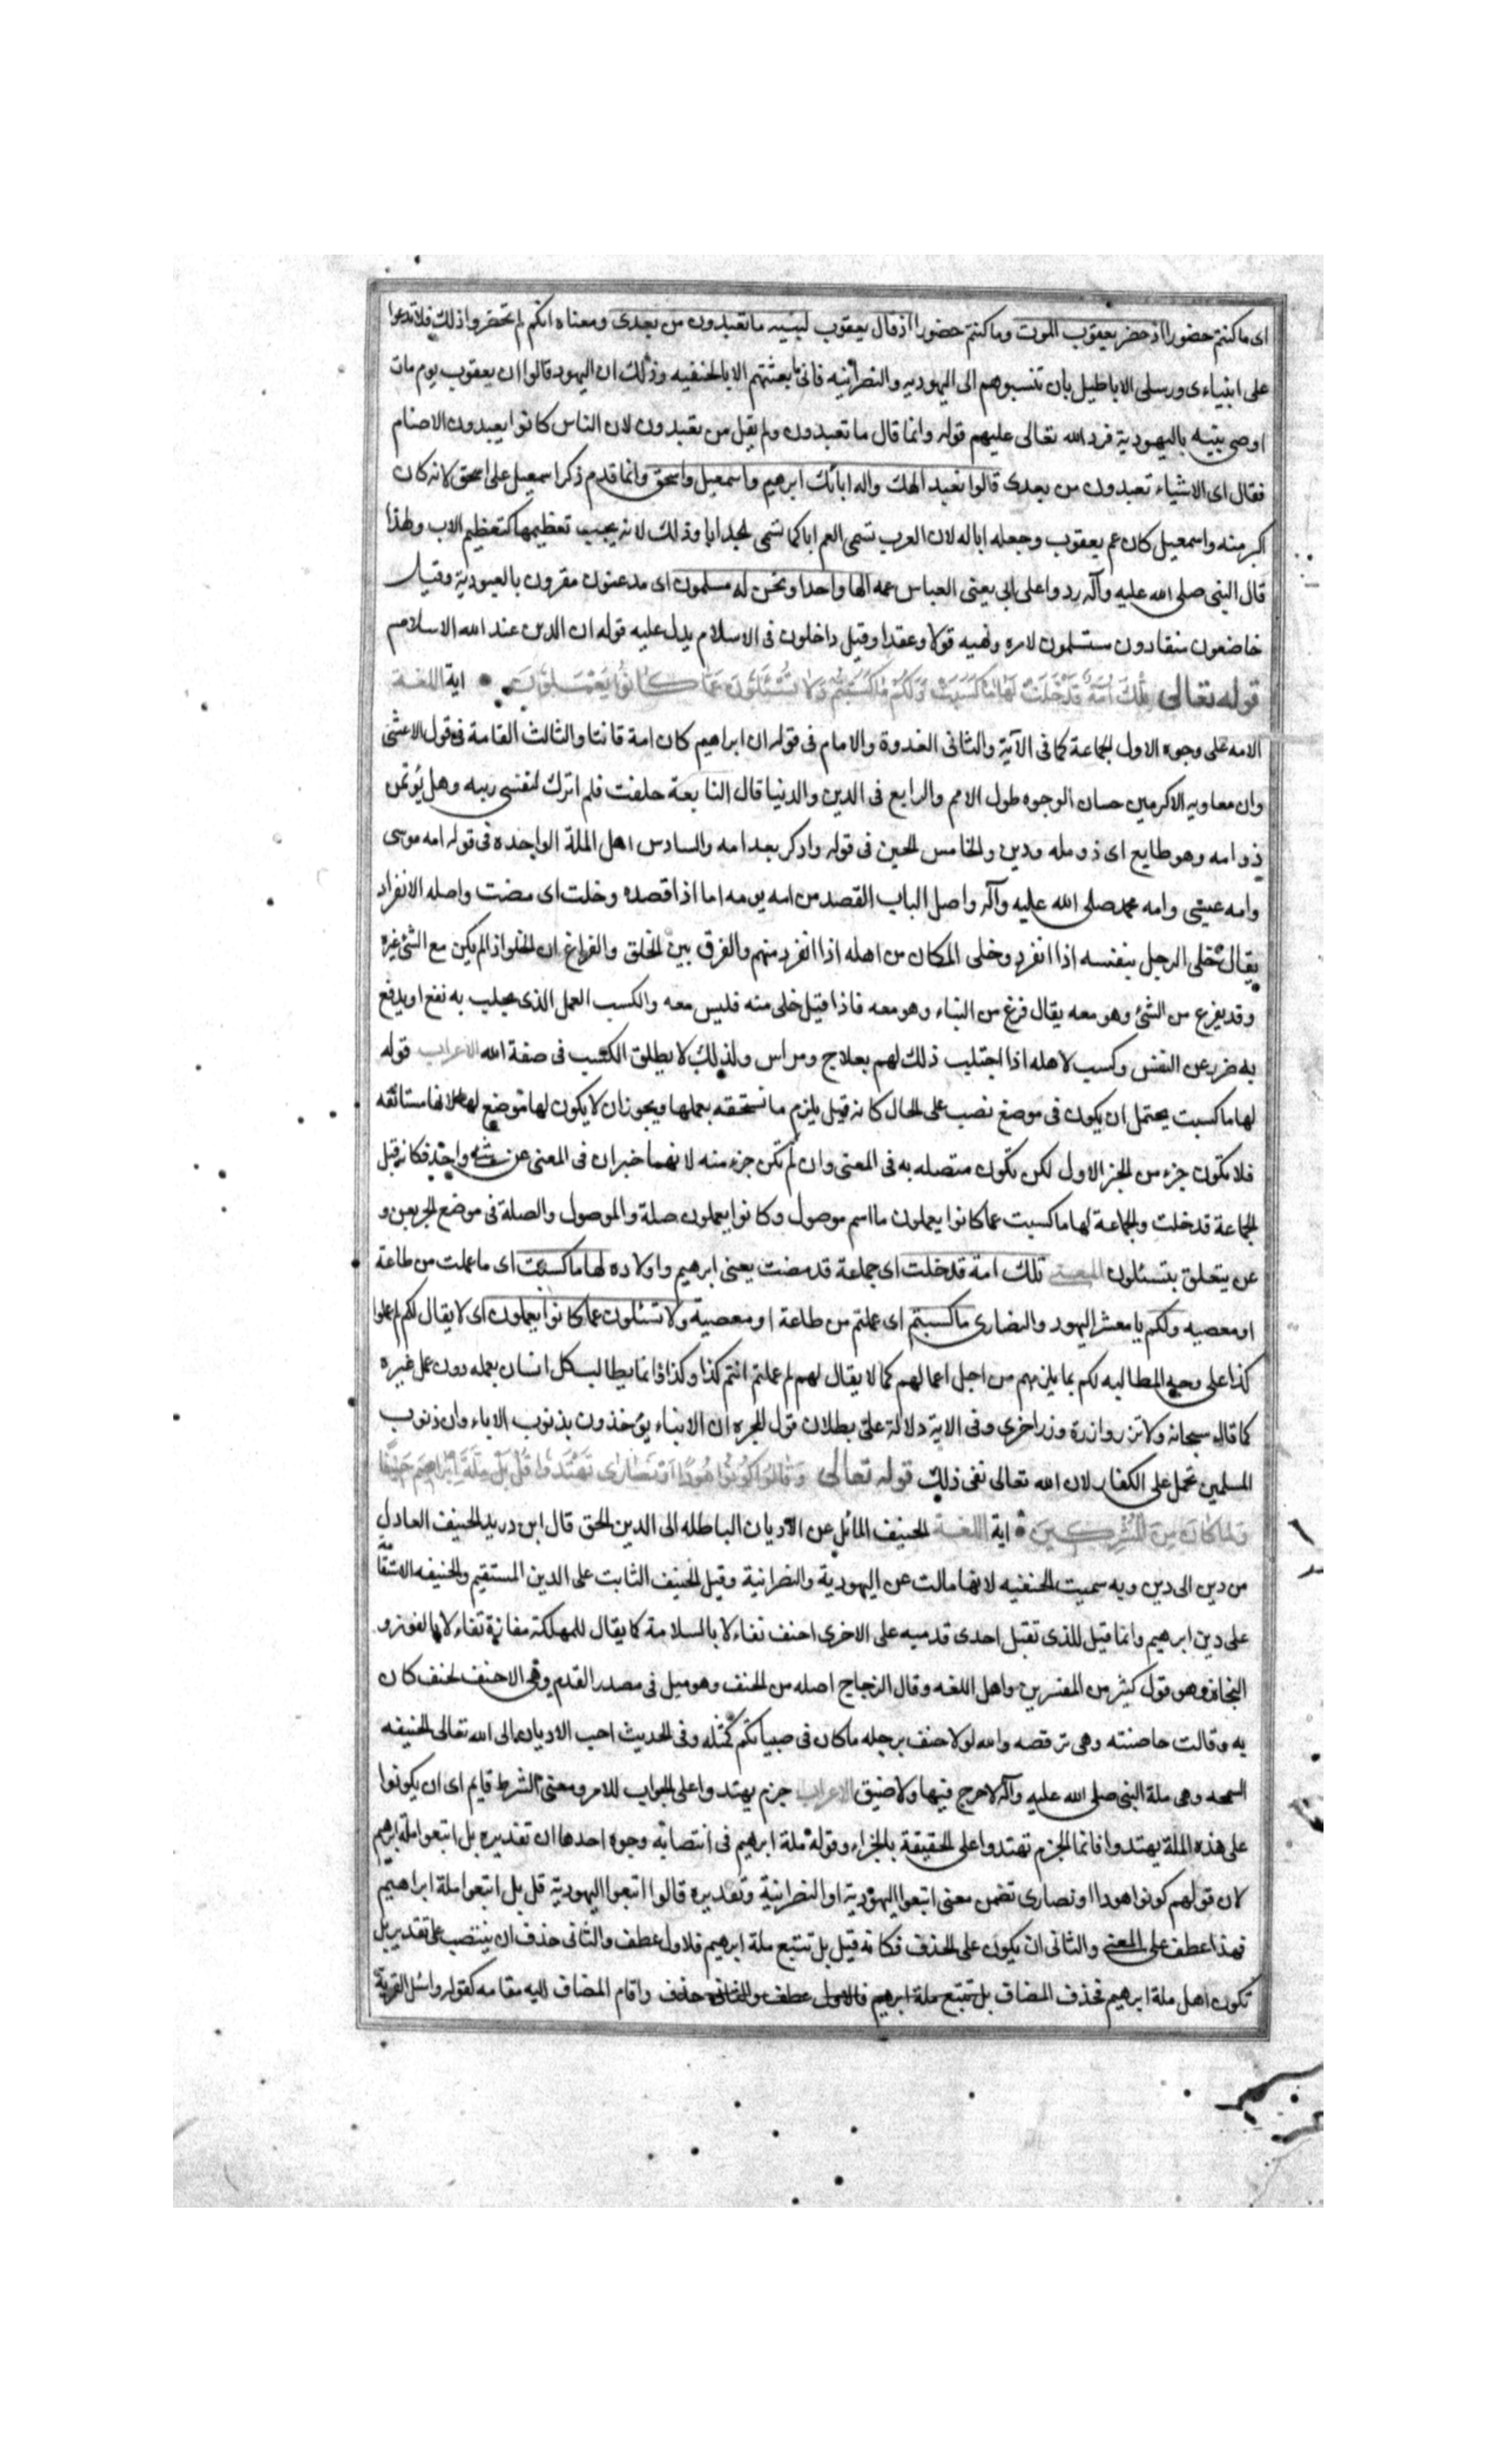 اى ما كنتم حضورا اذ حضر يعقوب الموت وما كنتم حضورا اذ قال يعقوب لبنيه ما تعبدون من بعدى ومعناه انكم لم تحضروا ذلك فلا تدعوا
على انبياءى ورسلى الاباطيل بان تنسبوهم الى اليهوديه والنصرانيه فانى ما بعثتهم الا بالحنفيه وذلك ان اليهود قالوا ان يعقوب يوم مات
اوصى بنيه باليهودية فرد الله تعالى عليهم قوله وانما قال ما تعبدون ولم يقل من تعبدون لان الناس كانوا يعبدون الاصنام
فقال اى الاشياء تعبدون من بعدى قالوا نعبد الهك واله ابائك ابرهيم واسمعيل واسحق وانما قدم ذكر اسمعيل على اسحق لانه كان
اكبر منه واسمعيل كان عم يعقوب وجعله ابا له لان العرب تسمى العم ابا كما تسمى الجد ابا وذلك لانه يجب تعظيمها كتعظيم الاب ولهذا
قال النبى صلى الله عليه وآله ردوا على ابى يعنى العباس عمه الها واحدا ونحن له مسلمون اى مدعنون مقرون بالعبودية وقيل
خاضعون منقادون مستسلمون لامره ونهيه قولا وعقدا وقيل داخلون فى الاسلام يدل عليه قوله ان الدين عند الله الاسلام
قوله تعالى تلك امة قد خلت لها ما كسبت ولكم ما كسبتم ولا تسئلون عما كانوا يعملون اية اللغة
الامه على وجوه الاول الجماعة كما فى الآية والثانى القدوة والامام فى قوله ان ابراهيم كان امة قانتا والثالث القامة فى قول الاعشى
وان معاويه الاكرمين حسان الوجوه طول الامم والرابع فى الدين والدنيا قال النابعة حلفت فلم اترك لنفسى ريبه وهل يؤتمن
ذو امه وهو طايع اى ذو مله ودين والخامس الحين فى قوله وادكر بعد امه والسادس اهل الملة الواحده فى قوله امه موسى
وامه عيسى وامه محمد صلى الله عليه وآله واصل الباب القصد من امه يومه اما اذا قصده وخلت اى مضت واصله الانفراد
يقال خلى الرجل بنفسه اذا انفرد وخلى المكان من اهله اذا انفرد منهم والفرق بين الخلق والفراغ ان الخلو اذا لم يكن مع الشئ غيره
وقد يفرغ من الشئ وهو معه يقال فرغ من البناء وهو معه فاذا قيل خلى منه فليس معه والكسب العمل الذى يجلب به نفع او يدفع
به ضرر عن النفس وكسب لاهله اذا اجتلب ذلك لهم بعلاج ومراس ولذلك لا يطلق الكسب فى صفة الله الاعراب قوله
لها ما كسبت يحتمل ان يكون فى موضع نصب على الحال كانه قيل يلزم ما تستحقه بعملها ويجوز ان لا يكون لها موضع لانها مستانفه
فلا تكون جزء من الجز الاول لكن تكون متصله به فى المعنى وان لم تكن جزء منه لانهما خبران فى المعنى عن شئ واحد فكانه قيل
الجماعة قد خلت والجماعة لها ما كسبت عما كانوا يعملون ما اسم موصول وكانوا يعملون صلة والموصول والصلة فى موضع الجر بعن و
عن يتعلق بتسئلون المعنى تلك امة قد خلت اى جماعة قد مضت يعنى ابرهيم واولاده لها ما كسبت اى ما عملت من طاعة
او معصيه ولكم يا معشر اليهود والنصارى ما كسبتم اى عملتم من طاعة او معصية ولا تسئلون عما كانوا يعملون اى لا يقال لكم لم عملوا
كذا على وجه المطالبه لكم بما يلزمهم من اجل اعمالهم كما لا يقال لهم لم عملتم انتم كذا وكذا وانما يطالب كل انسان بعمله دون عمل غيره
كما قال سبحانه ولا تزر وازرة وزر اخرى وفى الاية دلالة على بطلان قول المجبره ان الابناء يؤخذون بذنوب الاباء وان ذنوب
المسلمين تحمل على الكفار لان الله تعالى نفى ذلك قوله تعالى وقالوا كونوا هودا او نصارى تهتدوا قل بل ملة ابراهيم حنيفا
وما كان من المشركين اية اللغة الحنيف المائل عن الاديان الباطله الى الدين الحق قال ابن دريد الحنيف العادل
من دين الى دين وبه سميت الحنفيه لانها مالت عن اليهودية والنصرانية وقيل الحنيف الثابت على الدين المستقيم والحنيفه الاستقامة
على دين ابرهيم وانما قيل للذى تقبل احدى قدميه على الاخرى احنف تفاءلا بالسلامة كما يقال للمهلكة مفازة تفاءلا بالفوز و
النجاة وهو قول كثير من المفسرين واهل اللغه وقال الزجاج اصله من الحنف وهو ميل فى صدر القدم وسمى الاحنف لحنف كان
به وقالت حاضنته وهى ترقصه والله لولا حنف برجله ما كان فى صبيانكم كمثله وفى الحديث احب الاديان الى الله تعالى الحنيفه
السمحه وهى ملة النبى صلى الله عليه وآله لا حرج فيها ولا ضيق الاعراب جزم يهتدوا على الجواب للامر ومعنى الشرط قايم اى ان يكونوا
على هذه الملة يهتدوا فانما الجزم تهتدوا على الحقيقة بالجزاء وقوله ملة ابرهيم فى انتصابه وجوه احدها ان تقديره بل اتبعوا ملة ابرهيم
لان قولهم كونوا هودا او نصارى تضمن معنى اتبعوا اليهودية او النصرانية وتقديره قالوا اتبعوا اليهودية قل بل اتبعوا ملة ابراهيم
فهذا عطف على المعنى والثانى ان يكون على الحذف فكانه قيل بل نتبع ملة ابرهيم فلاول عطف والثانى حذف ان ينتصب على تقدير بل
تكون اهل ملة ابرهيم فحذف المضاف بل نتبع ملة ابرهيم فالاول عطف والثانى حذف واقام المضاف اليه مقامه كقوله واسئل القرية